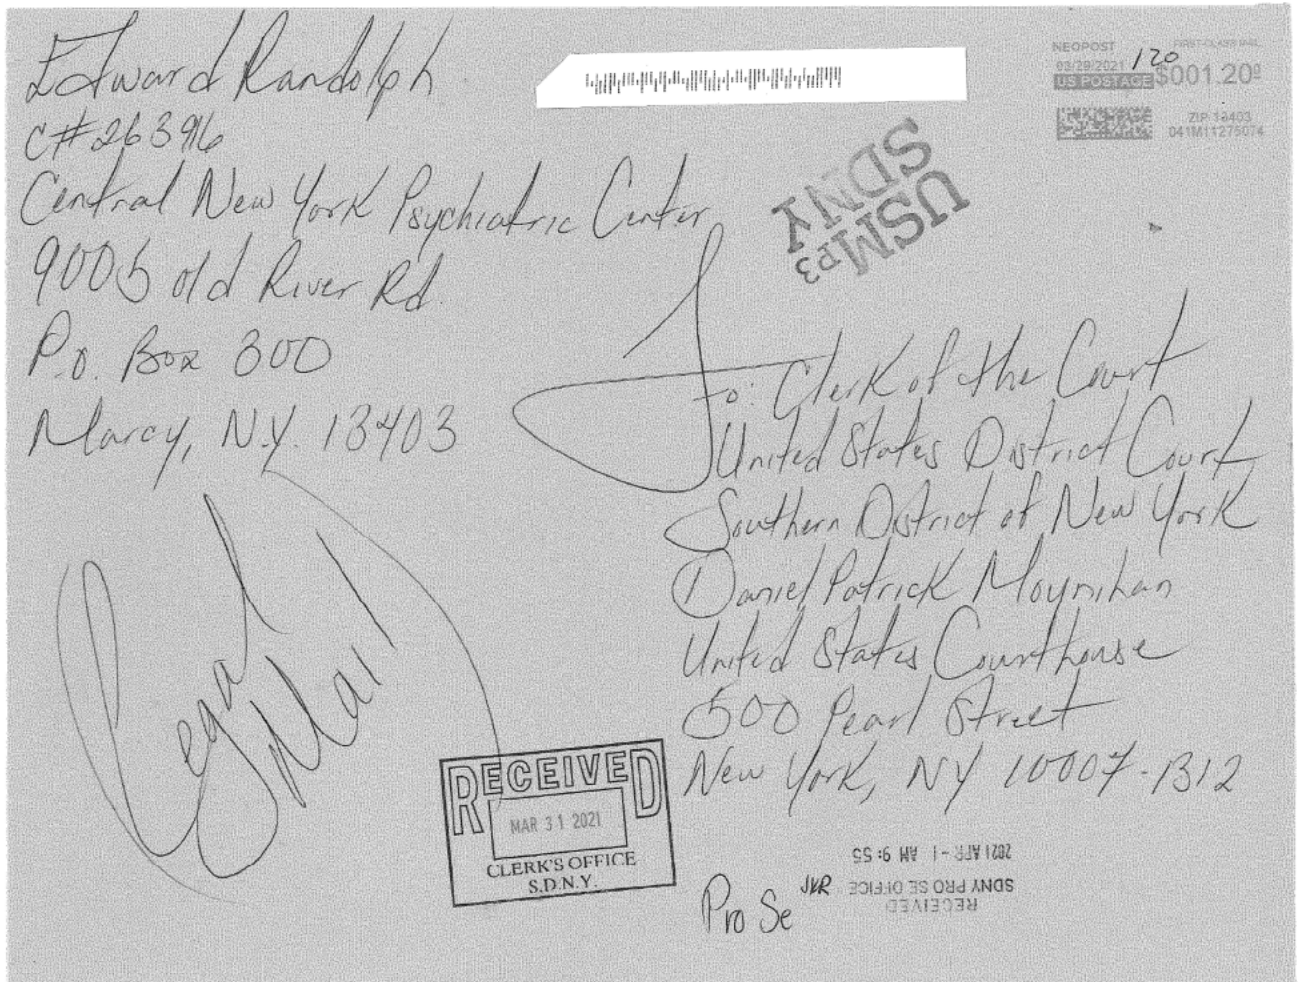 Edward Randolph
C# 263916
Central New York Psychiatric Center
9005 old River Rd.
P.O. Box 300
Marcy, N.Y. 13403
NEOPOST
FIRST-CLASS MAIL
03/29/2021
120
US POSTAGE $001.20⁰
ZIP 13403
041M11275074
USMP3
SDNY
To: Clerk of the Court
United States District Court
Southern District of New York
Daniel Patrick Moynihan
United States Courthouse
500 Pearl Street
New York, NY 10007-1312
Legal
Mail
RECEIVED
MAR 31 2021
CLERK'S OFFICE
S.D.N.Y.
Pro Se
RECEIVED
SDNY PRO SE OFFICE
2021 APR -1 AM 9:55